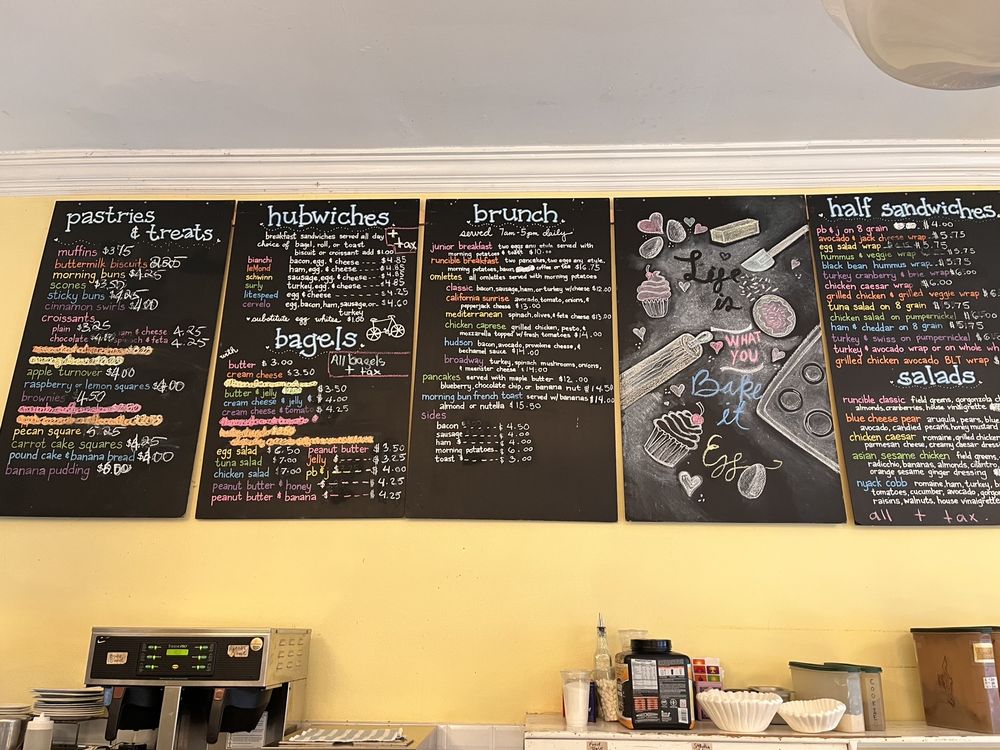 pastries
& treats
muffins $3.75
buttermilk biscuits
morning buns $4.25
scones $3.50
sticky buns
cinnamon swirls
croissants
plain $3.25
chocolate
ham & cheese 4.25
& feta 4.25
apple turnover $4.00
raspberry or lemon squares $4.00
brownies 4.50
pecan square 5.25
carrot cake squares $4.25
pound cake & banana bread $4.00
banana pudding
hubwiches
breakfast sandwiches served all day
choice of bagel, roll, or toast
biscuit or croissant add $1.00
+ tax
bianchi bacon, egg, & cheese --- $4.85
leMond ham, egg, & cheese --- $4.85
schwinn sausage, egg, & cheese --- $4.85
surly turkey, egg, & cheese --- $4.85
litespeed egg & cheese --- $4.25
cervelo egg, bacon, ham, sausage, or turkey -- $4.60
substitute egg whites $1.00
bagels.
with
All bagels
+ tax
butter $3.00
cream cheese $3.50
butter & jelly $3.50
cream cheese & jelly $4.00
cream cheese & tomato $4.25
egg salad $6.50
tuna salad $7.00
chicken salad $7.00
peanut butter $3.50
jelly $3.25
pb & j $4.00
peanut butter & honey $4.25
peanut butter & banana $4.25
brunch
served 7am-5pm daily
junior breakfast two eggs any style served with
morning potatoes & toast $10.00
runcible breakfast two pancakes, two eggs any style,
morning potatoes, bacon, coffee or tea $16.75
omelettes all omelettes served with morning potatoes
classic bacon, sausage, ham, or turkey w/cheese $12.00
california sunrise avocado, tomato, onions, &
pepperjack cheese $13.00
mediterranean spinach, olives, & feta cheese $13.00
chicken caprese grilled chicken, pesto, &
mozzarella topped w/fresh tomatoes $14.00
hudson bacon, avocado, provolone cheese &
bechamel sauce $14.00
broadway turkey, spinach, mushrooms, onions,
& muenster cheese $14.00
pancakes served with maple butter $12.00
blueberry, chocolate chip, or banana nut $14.50
morning bun french toast served w/bananas $14.00
almond or nutella $15.50
sides
bacon ---- $4.50
sausage ---- $4.00
ham ---- $4.00
morning potatoes -- $6.00
toast ---- $3.00
Life
is
WHAT
YOU
Bake
it
Egg
half sandwiches
pb & j on 8 grain $4.00
avocado & jack cheese wrap $5.75
egg salad wrap $5.75
hummus & veggie wrap $5.75
black bean hummus wrap $5.75
turkey cranberry & brie wrap $6.00
chicken caesar wrap $6.00
grilled chicken & grilled veggie wrap
tuna salad on 8 grain $5.75
chicken salad on pumpernickel $6.00
ham & cheddar on 8 grain $5.75
turkey & swiss on pumpernickel
turkey & avocado wrap or on whole
grilled chicken avocado BLT wrap
salads
runcible classic field greens, gorgonzola
almonds, cranberries, house vinaigrette
blue cheese pear arugula, pears, blue
avocado, candied pecans, honey mustard
chicken caesar romaine, grilled chicken
parmesan cheese, creamy caesar
asian sesame chicken field greens,
radicchio, bananas, almonds, cilantro,
orange sesame ginger dressing
nyack cobb romaine, ham, turkey,
tomatoes, cucumber, avocado,
raisins, walnuts, house vinaigrette
all + tax.
COOKIE